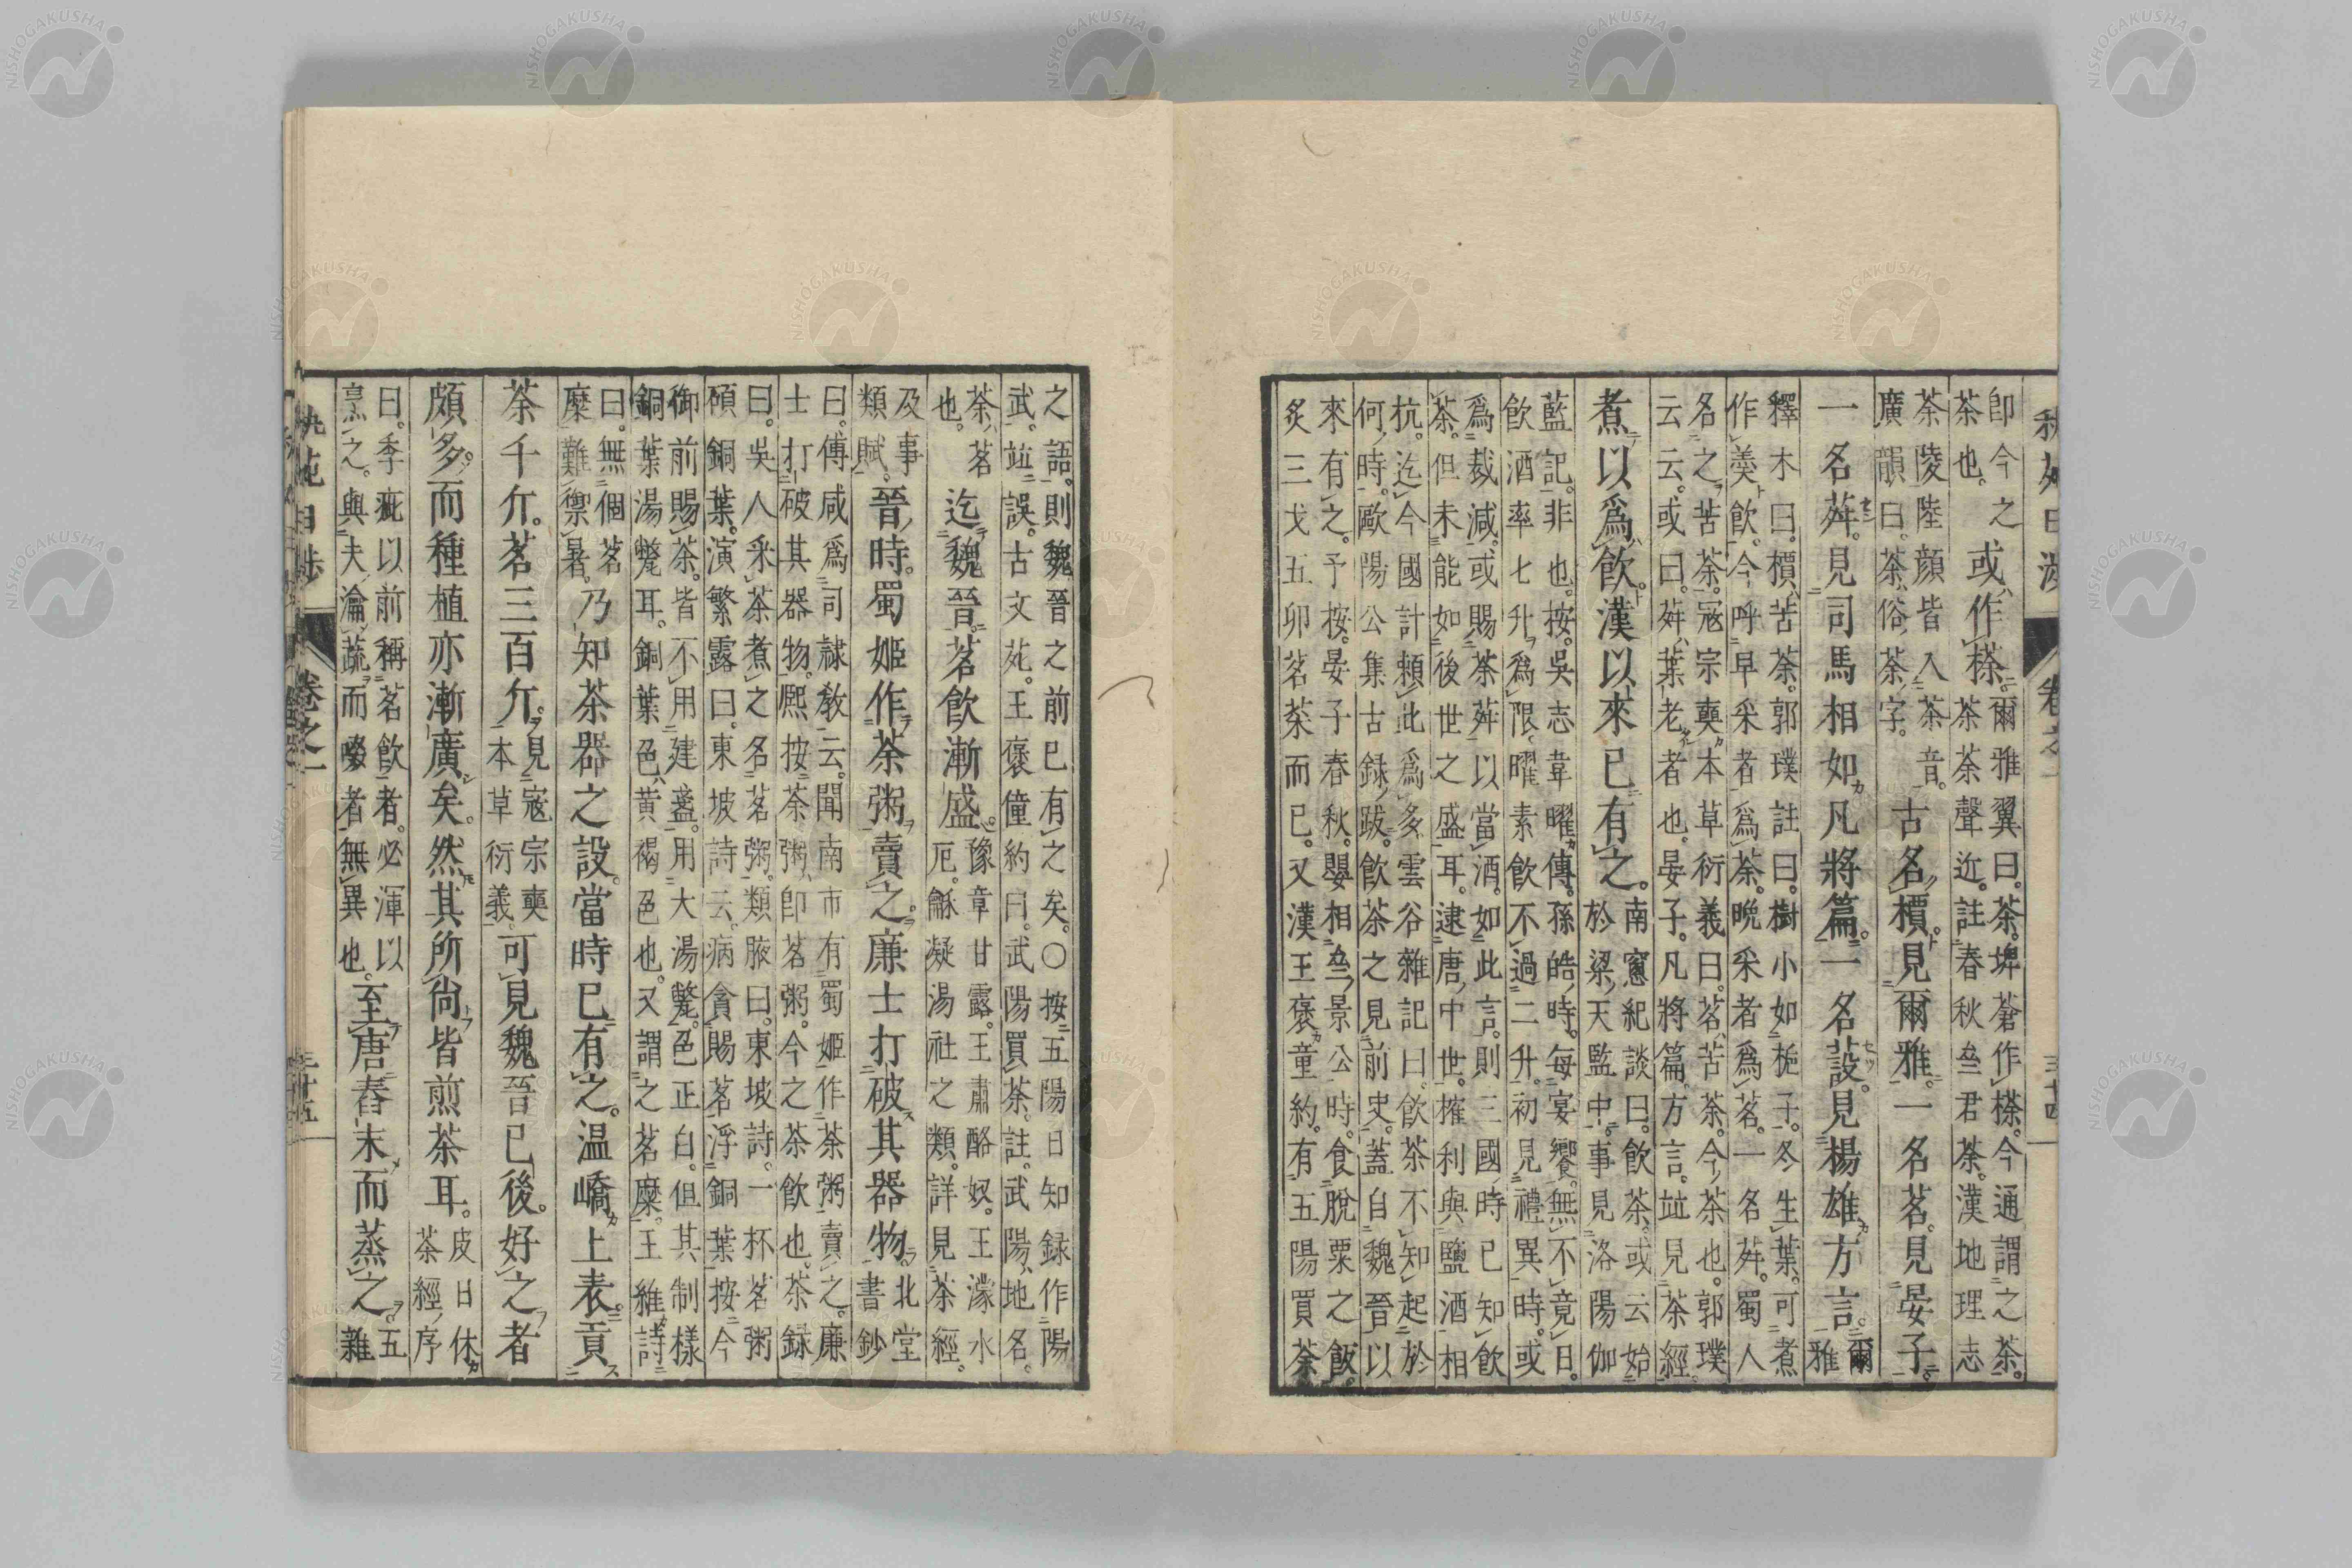 即今之
茶也。
或作㯆。
爾雅翼曰。茶。埤蒼作㯆。今通謂之茶。
茶荼聲近。註春秋亝君荼。漢地理志
荼陵陸顔皆入茶音。
廣韻曰。荼俗茶字。
古名檟。見爾雅。一名茗。見晏子。
一名荈。見司馬相如凡將篇。一名蔎。見楊雄方言。
爾
雅
釋木曰。檟苦荼。郭璞註曰。樹小如梔子。冬生葉。可煮
作羮飲。今呼早采者爲荼。晩采者爲茗。一名荈。蜀人
名之苦荼。寇宗奭本草衍義曰。茗苦荼。今茶也。郭璞
云云。或曰。荈葉老者也。晏子。凡將篇。方言。竝見茶經。
煮以爲飲。漢以來已有之。
南窻紀談曰。飲茶。或云始
於梁天監中。事見洛陽伽
藍記。非也。按。吳志韋曜傳。孫皓時。每宴饗。無不竟日。
飲酒率七升爲限。曜素飲不過二升。初見禮異時。或
爲裁減。或賜茶荈以當酒。如此言。則三國時已知飲
茶。但未能如後世之盛耳。逮唐中世。榷利與鹽酒相
抗。迄今國計頼此爲多。雲谷雜記曰。飲茶不知起於
何時。歐陽公集古録跋。飲茶之見前史。蓋自魏晉以
來有之。予按。晏子春秋。嬰相亝景公時。食脫粟之飯。
炙三戈五卵茗菜而已。又漢王褒童約。有五陽買荼
三十四
之語。則魏晉之前已有之矣。○按五陽日知録作陽
武。竝誤。古文苑。王褒僮約曰。武陽買茶。註。武陽地名。
茶茗
也。
迄魏晉。茗飲漸盛。
豫章甘露。王肅酪奴。王濛水
厄。龢凝湯社之類。詳見茶經。
及事
類賦。
晉時。蜀姬作茶粥賣之。廉士打破其器物。
北堂
書鈔
曰。傅咸爲司隷教云。聞南市有蜀姬作茶粥賣之。廉
士打破其器物。熈按茶粥即茗粥。今之茶飲也。茶録
曰。吳人采茶煮之名茗粥。類腋曰。東坡詩。一杯茗粥
碩銅葉。演繁露曰。東坡詩云。病貪賜茗浮銅葉。按今
御前賜茶。皆不用建盞。用大湯氅。色正白。但其制樣
銅葉湯氅耳。銅葉色黄褐色也。又謂之茗糜。王維詩
曰。無個茗
糜難禦暑。
乃知茶器之設。當時已有之。温嶠上表。貢
茶千斤。茗三百斤。
見寇宗奭
本草衍義。
可見魏晉已後。好之者
頗多。而種植亦漸廣矣。然其所尙皆煎茶耳。
皮日休
茶經序
曰。季疵以前稱茗飲者。必渾以
烹之。與夫瀹蔬而啜者無異也。
至唐舂末而蒸之。
五
雜
卷之一
三十五